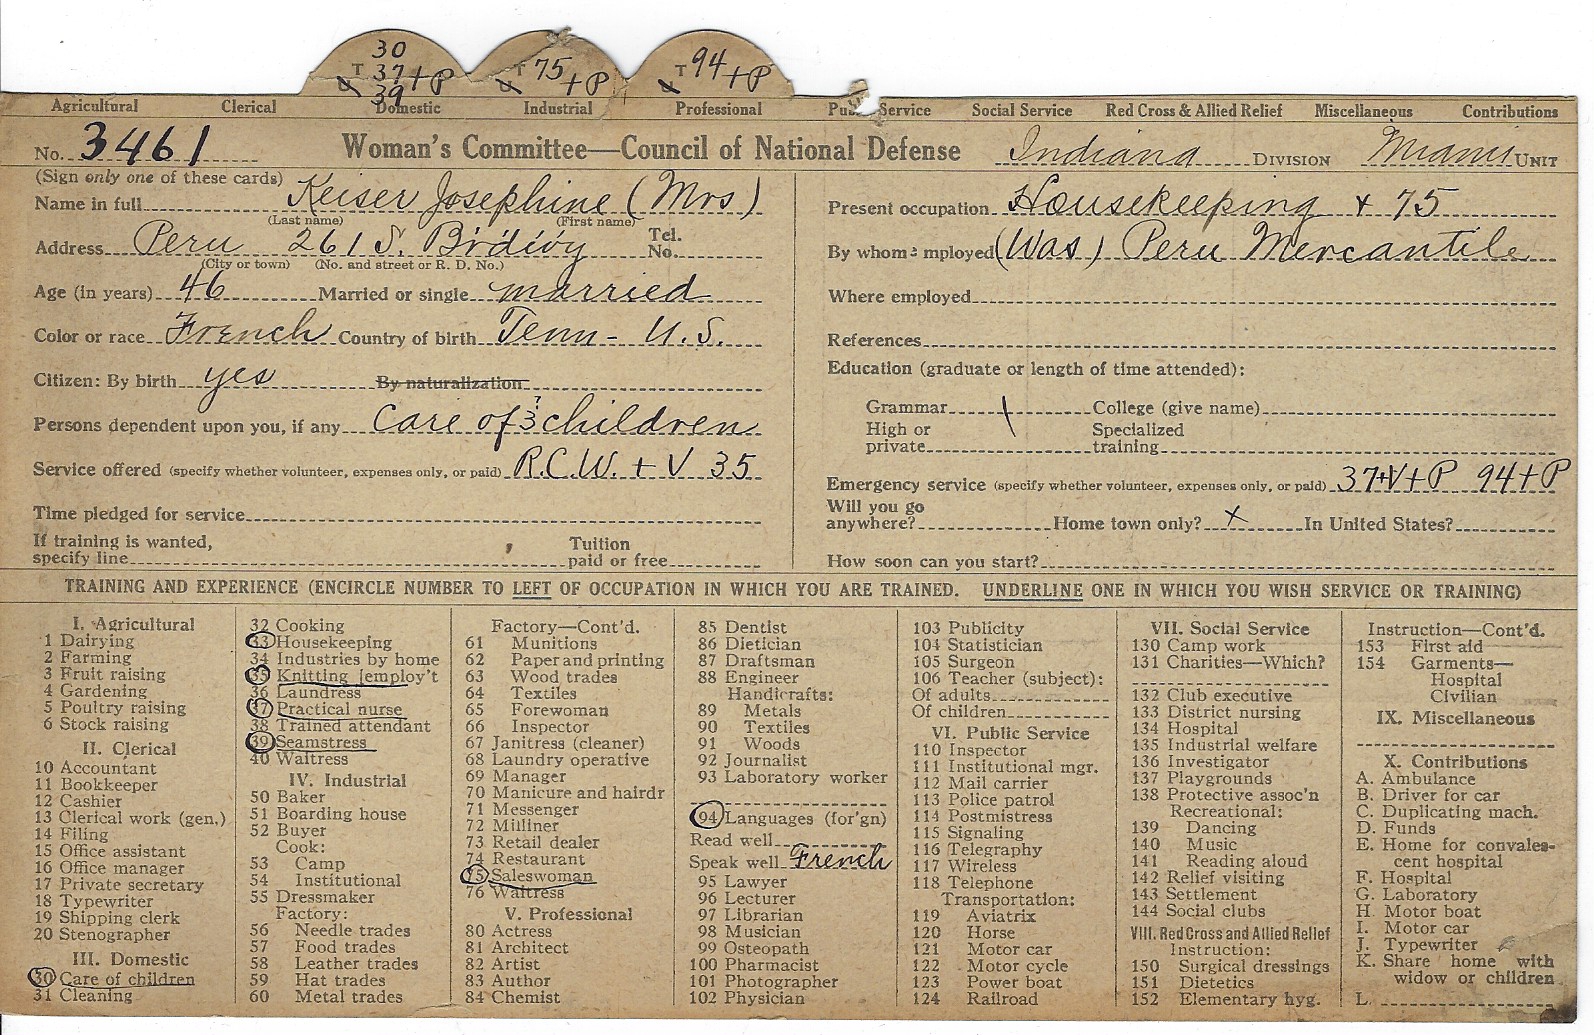 30
T 37 + P
39
T 75 + P
T 94 + P
Agricultural Clerical Domestic Industrial Professional Pub Service Social Service Red Cross & Allied Relief Miscellaneous Contributions
No. 3461 Woman's Committee—Council of National Defense Indiana DIVISION Miami UNIT
(Sign only one of these cards)
Name in full Keiser Josephine (Mrs)
(Last name) (First name)
Address Peru 261 S. Brdwy Tel. No.
(City or town) (No. and street or R. D. No.)
Age (in years) 46 Married or single married
Color or race French Country of birth Tenn - U.S.
Citizen: By birth yes By naturalization
Persons dependent upon you, if any Care of 3 ? children
Service offered (specify whether volunteer, expenses only, or paid) R.C.W. + V 35
Time pledged for service
If training is wanted, specify line Tuition paid or free
Present occupation Housekeeping + 75
By whom employed (Was) Peru Mercantile
Where employed
References
Education (graduate or length of time attended):
Grammar \ College (give name)
High or private Specialized training
Emergency service (specify whether volunteer, expenses only, or paid) 37+V+P 94+P
Will you go anywhere? Home town only? x In United States?
How soon can you start?
TRAINING AND EXPERIENCE (ENCIRCLE NUMBER TO LEFT OF OCCUPATION IN WHICH YOU ARE TRAINED. UNDERLINE ONE IN WHICH YOU WISH SERVICE OR TRAINING)
I. Agricultural
1 Dairying
2 Farming
3 Fruit raising
4 Gardening
5 Poultry raising
6 Stock raising
II. Clerical
10 Accountant
11 Bookkeeper
12 Cashier
13 Clerical work (gen.)
14 Filing
15 Office assistant
16 Office manager
17 Private secretary
18 Typewriter
19 Shipping clerk
20 Stenographer
III. Domestic
30 Care of children
31 Cleaning
32 Cooking
33 Housekeeping
34 Industries by home
35 Knitting [employ't
36 Laundress
37 Practical nurse
38 Trained attendant
39 Seamstress
40 Waitress
IV. Industrial
50 Baker
51 Boarding house
52 Buyer
Cook:
53 Camp
54 Institutional
55 Dressmaker
Factory:
56 Needle trades
57 Food trades
58 Leather trades
59 Hat trades
60 Metal trades
Factory—Cont'd.
61 Munitions
62 Paper and printing
63 Wood trades
64 Textiles
65 Forewoman
66 Inspector
67 Janitress (cleaner)
68 Laundry operative
69 Manager
70 Manicure and hairdr
71 Messenger
72 Milliner
73 Retail dealer
74 Restaurant
75 Saleswoman
76 Waitress
V. Professional
80 Actress
81 Architect
82 Artist
83 Author
84 Chemist
85 Dentist
86 Dietician
87 Draftsman
88 Engineer
Handicrafts:
89 Metals
90 Textiles
91 Woods
92 Journalist
93 Laboratory worker
94 Languages (for'gn)
Read well
Speak well French
95 Lawyer
96 Lecturer
97 Librarian
98 Musician
99 Osteopath
100 Pharmacist
101 Photographer
102 Physician
103 Publicity
104 Statistician
105 Surgeon
106 Teacher (subject):
Of adults
Of children
VI. Public Service
110 Inspector
111 Institutional mgr.
112 Mail carrier
113 Police patrol
114 Postmistress
115 Signaling
116 Telegraphy
117 Wireless
118 Telephone
Transportation:
119 Aviatrix
120 Horse
121 Motor car
122 Motor cycle
123 Power boat
124 Railroad
VII. Social Service
130 Camp work
131 Charities—Which?
132 Club executive
133 District nursing
134 Hospital
135 Industrial welfare
136 Investigator
137 Playgrounds
138 Protective assoc'n
Recreational:
139 Dancing
140 Music
141 Reading aloud
142 Relief visiting
143 Settlement
144 Social clubs
VIII. Red Cross and Allied Relief
Instruction:
150 Surgical dressings
151 Dietetics
152 Elementary hyg.
Instruction—Cont'd.
153 First aid
154 Garments—
Hospital
Civilian
IX. Miscellaneous
X. Contributions
A. Ambulance
B. Driver for car
C. Duplicating mach.
D. Funds
E. Home for convales-
cent hospital
F. Hospital
G. Laboratory
H. Motor boat
I. Motor car
J. Typewriter
K. Share home with
widow or children
L.